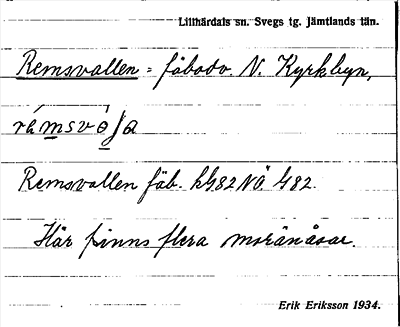 Lillhärdals sn. Svegs tg. Jämtlands län.
Remsvallen = fäbodv. N. Kyrkbyn,
Remsvallen fäb. hg82 NÖ 482.
Här finns flera moränåsar.
Erik Eriksson 1934.